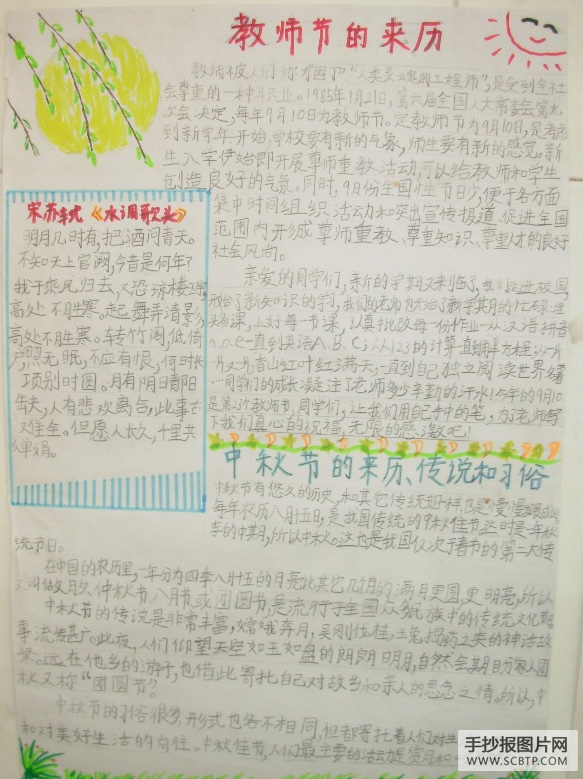 教师节的来历
教师被人们称为园丁、"人类灵魂的工程师",是受到全社
会尊重的一种职业。1985年1月21日,第六届全国人大常委会第九
次会决定,每年9月10日为教师节。定教师节为9月10日,是考虑
到新学年开始,学校要有新的气象,师生要有新的感觉。新
生入学伊始即开展尊师重教活动,可以给教师和学生
创造良好的气氛。同时,9月份全国性节日少,便于各方面
集中时间组织活动和突出宣传报道,促进全国
范围内形成尊师重教、尊重知识、尊重人才的良好
社会风尚。
亲爱的同学们,新的学期又来临了,我们走进校园,
开始了新知识的学习,我们的老师也开始了新学期的忙碌
每一节课,认真批改每一份作业一从汉语拼音
a、o、e一直到英语A、B、C;从123的计算一直到解方程;从一片
一直到自己独立阅读世界
同学们的成长凝注了老师多少辛勤的汗水!今年的9月10
是第23个教师节,同学们,让我们用自己手中的笔,为老师写
下我们真心的祝福,无限的感激吧!
宋苏轼《水调歌头》
明月几时有,把酒问青天。
不知天上宫阙,今昔是何年?
我于乘风归去,又恐琼楼玉宇,
高处不胜寒。起舞弄清影,
高处不胜寒。转竹阁,低倚
户,照无眠,不应有恨,何时长
项别时圆。月有阴日青阳
缺,人有悲欢离合,此事古
难全。但愿人长久,千里共
婵娟。
中秋节的来历、传说和习俗
中秋节有悠久的历史,和其它传统节日一样,也是慢慢发展
每年农历八月十五日,是我国传统的中秋佳节。这时是一年秋
季的中期,所以中秋。这也是我国仅次于春节的第二大传
统节日。
在中国的农历里,一年分为四季八月十五的月亮比其它几个月的满月更圆更明亮,所以
又叫做月夕、仲秋节、八月节或团圆节,是流行于全国众多民族中的传统文化
中秋节的传说是非常丰富,嫦娥奔月,吴刚伐桂,玉兔捣药之类的神话故
事流传甚广。此夜,人们仰望天空如玉如盘的朗朗明月,自然会期日分家人团
聚。远在他乡的游子,也借此寄托自己对故乡和亲人的思念之情。所以,中
秋又称"团圆节"。
中秋节的习俗很多,形式也各不相同,但都寄托着人们对生
和对美好生活的向往。中秋佳节,人们最主要的活动是赏月和
手抄报图片网
WWW.SCBTP.COM